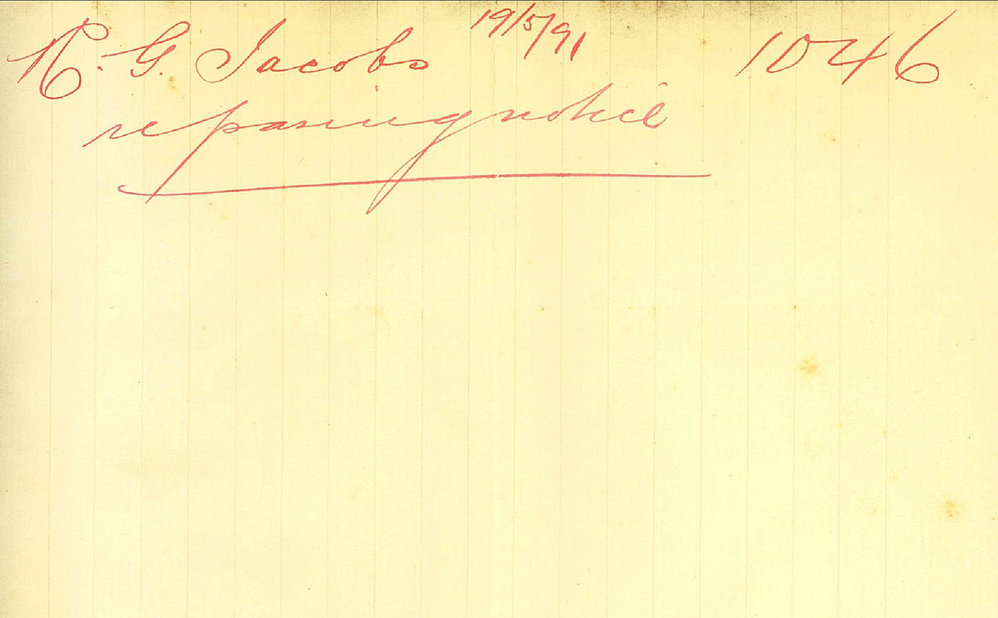 R. G. Jacobs 19/5/91 1046
re paring notice